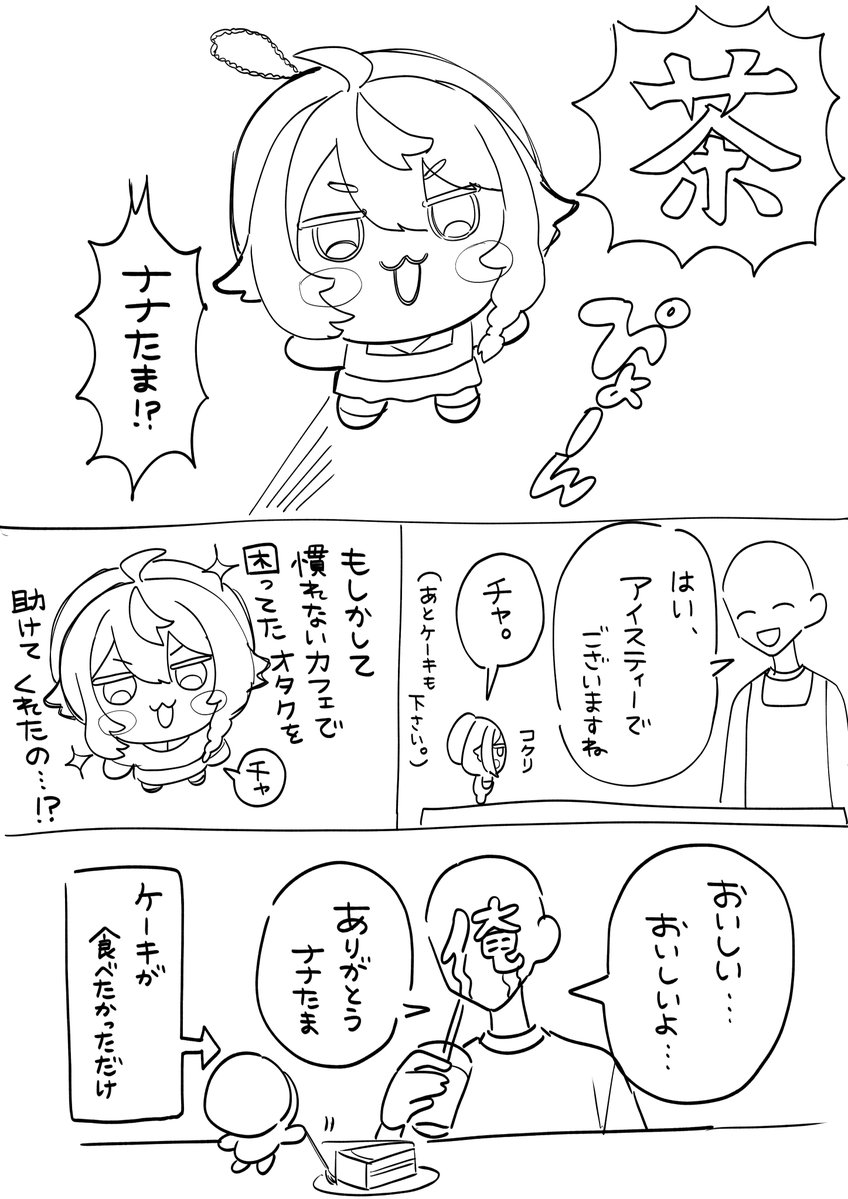 茶
ぴょーん
ナナたま!?
はい、
アイスティーで
ございますね
コクリ
チャ。
(あとケーキも
下さい。)
もしかして
慣れないカフェで
困ってたオタクを
助けてくれたの…!?
チャ
おいしい…
おいしいよ…
俺
ありがとう
ナナたま
ケーキが
食べたかっただけ